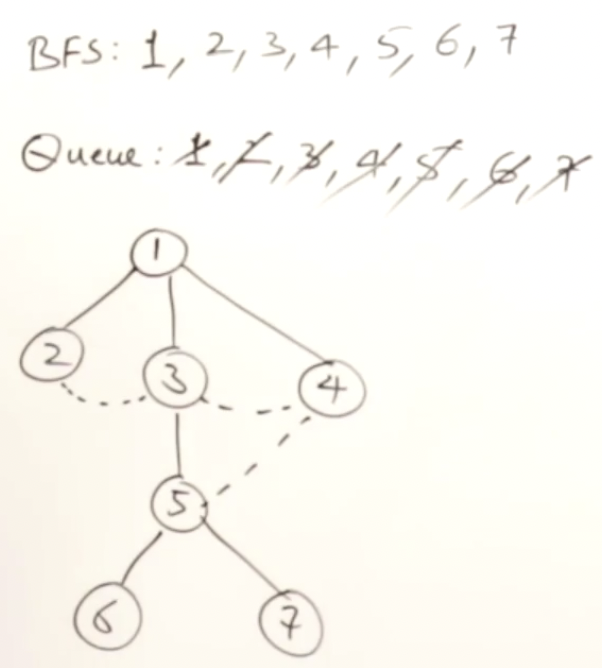 BFS: 1, 2, 3, 4, 5, 6, 7
Queue: 1, 2, 3, 4, 5, 6, 7
1
2 3 4
5
6 7